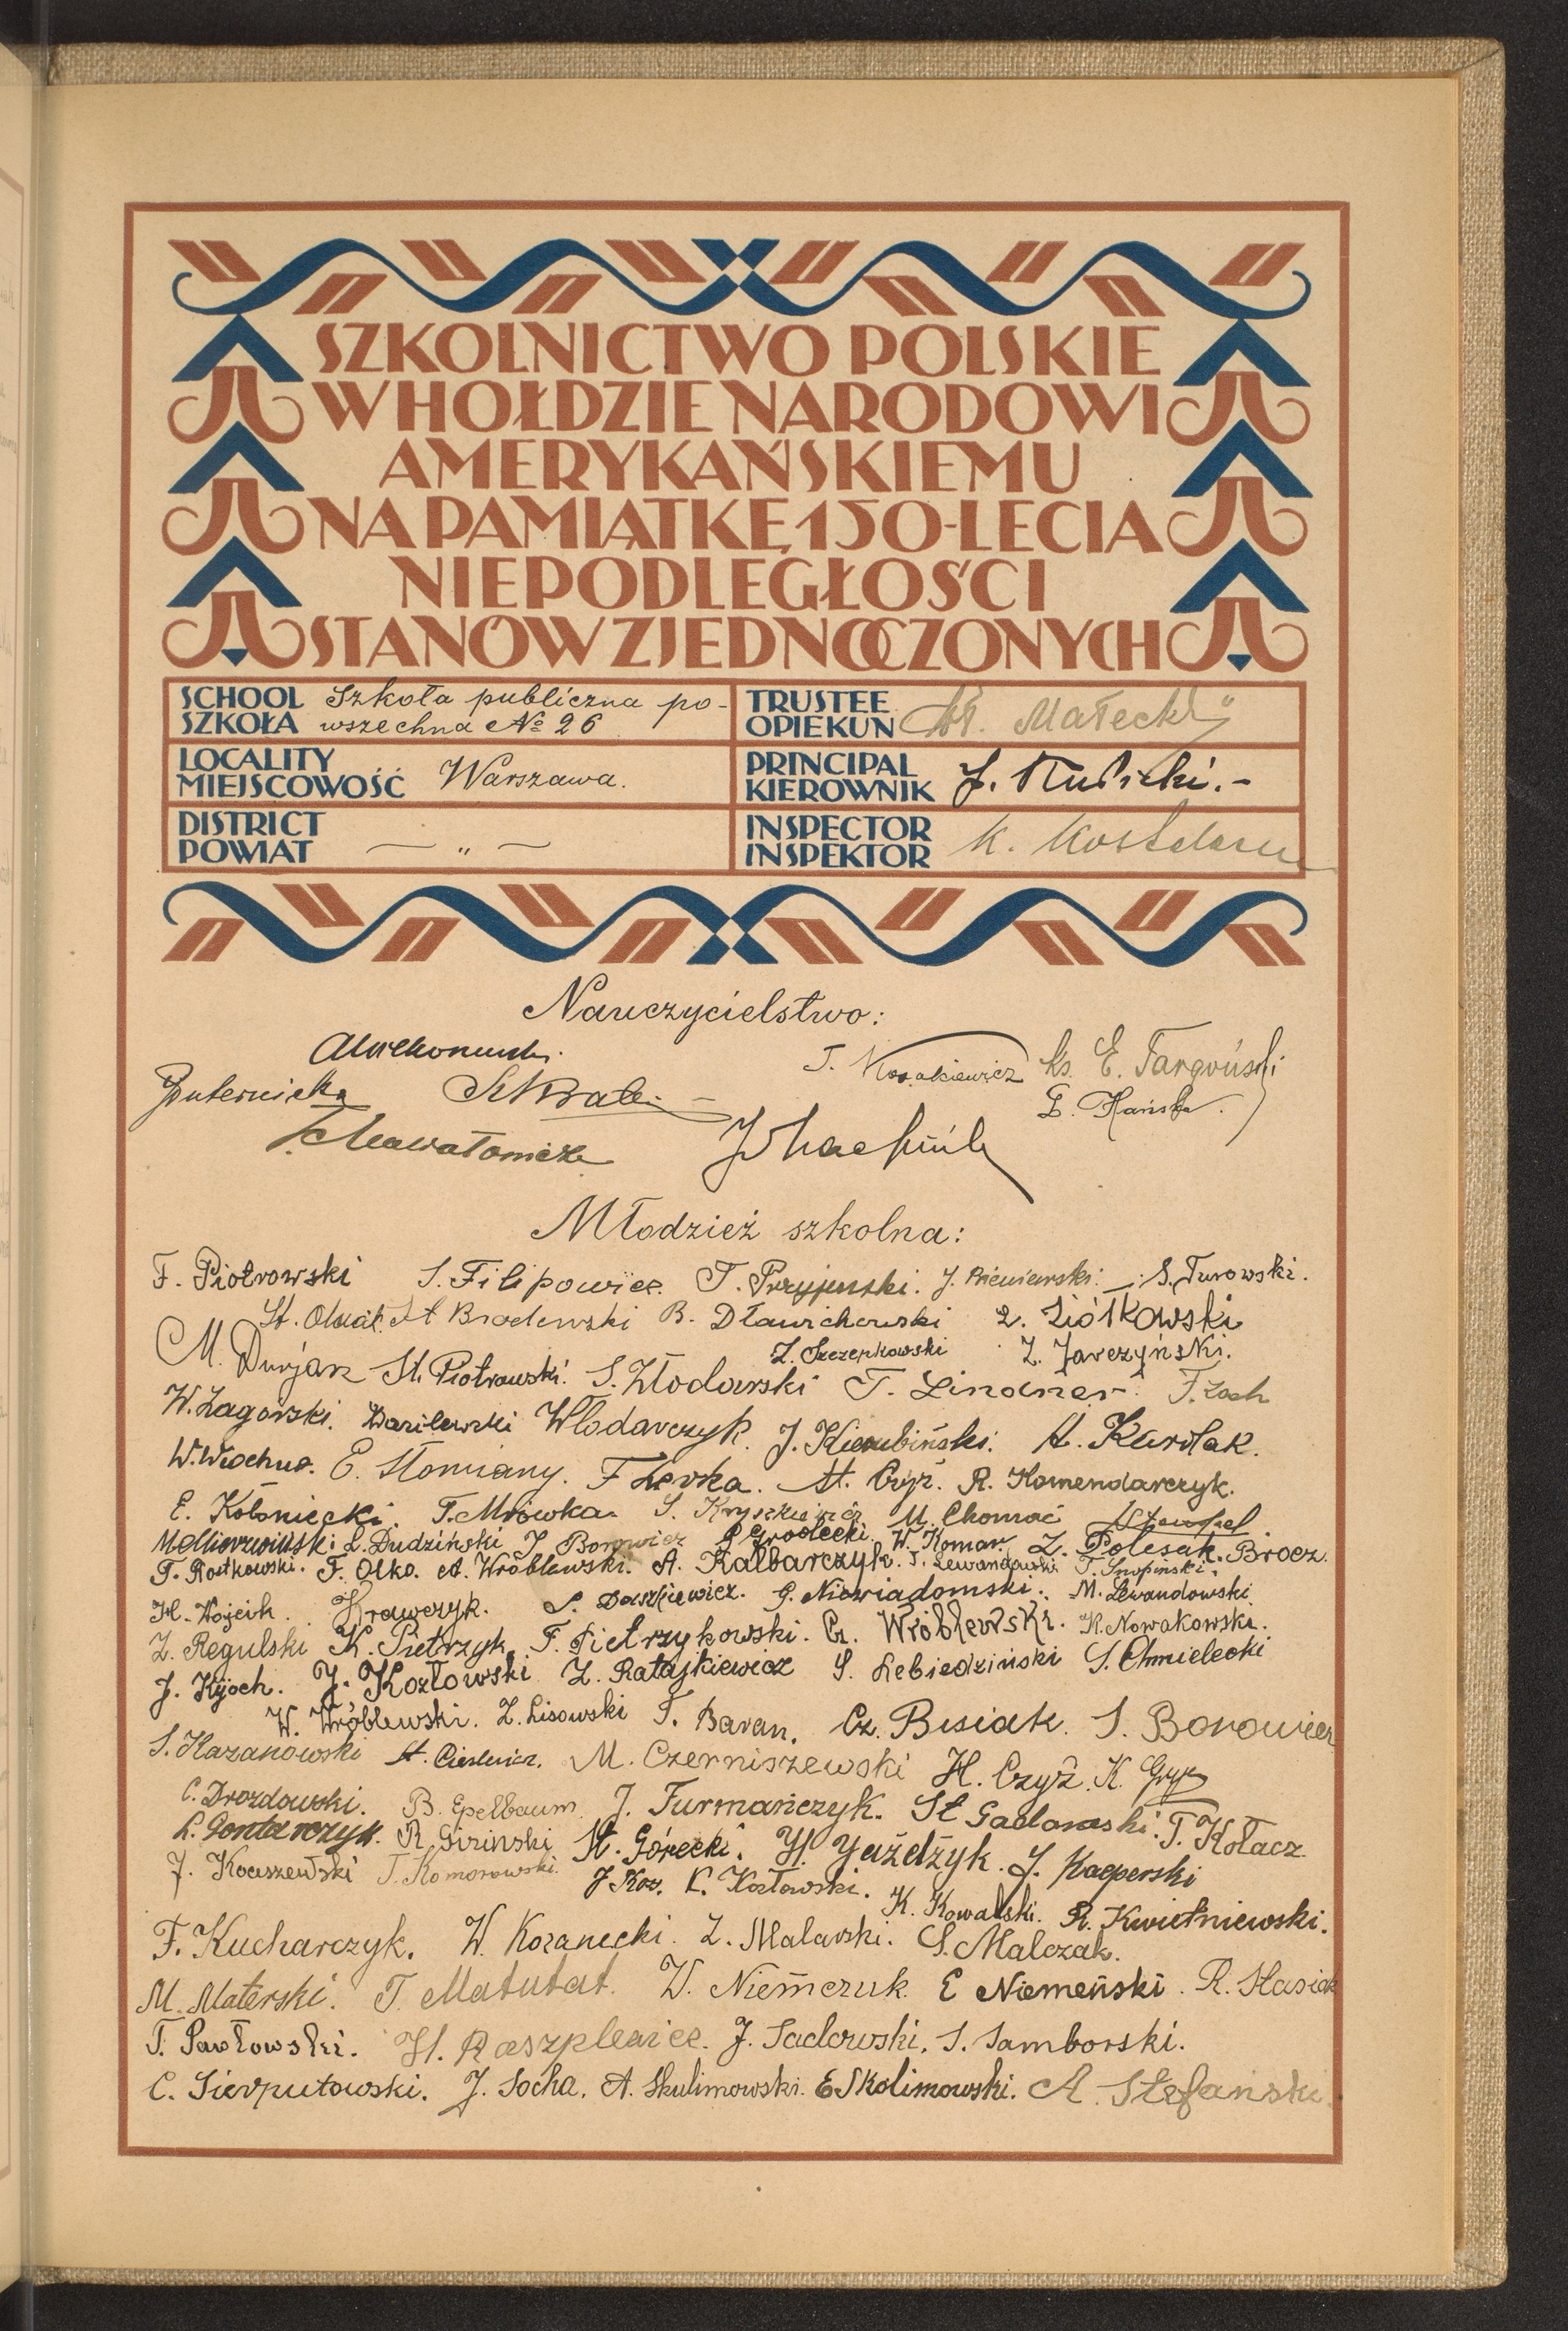 SZKOLNICTWO POLSKIE
W HOŁDZIE NARODOWI
AMERYKAŃSKIEMU
NA PAMIĄTKĘ 150-LECIA
NIEPODLEGŁOŚCI
STANÓW ZJEDNOCZONYCH
SCHOOL
SZKOŁA
Szkoła publiczna po-
wszechna № 26
TRUSTEE
OPIEKUN
Małecki
LOCALITY
MIEJSCOWOŚĆ
Warszawa.
PRINCIPAL
KIEROWNIK
J.
DISTRICT
POWIAT
— „ —
INSPECTOR
INSPEKTOR
K.
Nauczycielstwo:
ks. E. Targoński
J. Nowakiewicz
Młodzież szkolna:
F. Piotrowski S. Filipowicz. T. Przyjemski. J. S. Turowski.
St. B. Dławichowski Z. Ziółkowski
Z. Szczepkowski Z. Jarczyński.
M. Durjan St. Piotrowski. S. Złodarski T. Lindner. F. Zoch
W. Zagorski. Wasilewski Włodarczyk. J. Kierubiński. A. Karolak.
W. Wiochna. E. Słomiany. F. Żerka. St. R. Komendarczyk.
E. Kołoniecki. T. Mrówka S. Kryszkiewicz M. Chomać
L. Dudziński J. Borowicz P. Grodecki. W. Komar. Z. Polesak. Brocz.
T. Rostkowski. F. Olko. A. Wróblewski. A. Kalbarczyk. T. Lewandowski T. Snopiński.
H. Wojcik. Krawczyk. S. Daszkiewicz. G. Niewiadomski. M. Lewandowski.
Z. Regulski K. Pietrzyk F. Pietrzykowski. Cz. Wróblewski. K. Nowakowski.
J. Kijoch. J. Kozłowski Z. Ratajkiewicz S. Lebiedziński S. Chmielecki
W. Wróblewski. Z. Lisowski T. Baran. Cz. Busiak. S. Borowiec
S. Kazanowski M. Czerniszewski H. Czyż. K. Gryz
C. Drozdowski. B. Epelbaum J. Furmańczyk. St T. Kołacz.
L. Gontarczyk. R. Giziński St. Górecki. H. Jaźdżyk. J. Kacperski
J. Kociszewski T. Komorowski. J Kos. K. Kozłowski. K. Kowalski. R. Kwietniewski.
F. Kucharczyk. W. Kozanecki. Z. Malarski. S. Malczak.
M. Materski. T. Matutat. W. Niemczuk. E Niemeński. R. Stasiak
T. Pawłowski. H. Raszplewicz. J. Sadowski. S. Samborski.
C. Sierputowski. J. Socha. A. Skulimowski. E Skolimowski. A. Stefański.